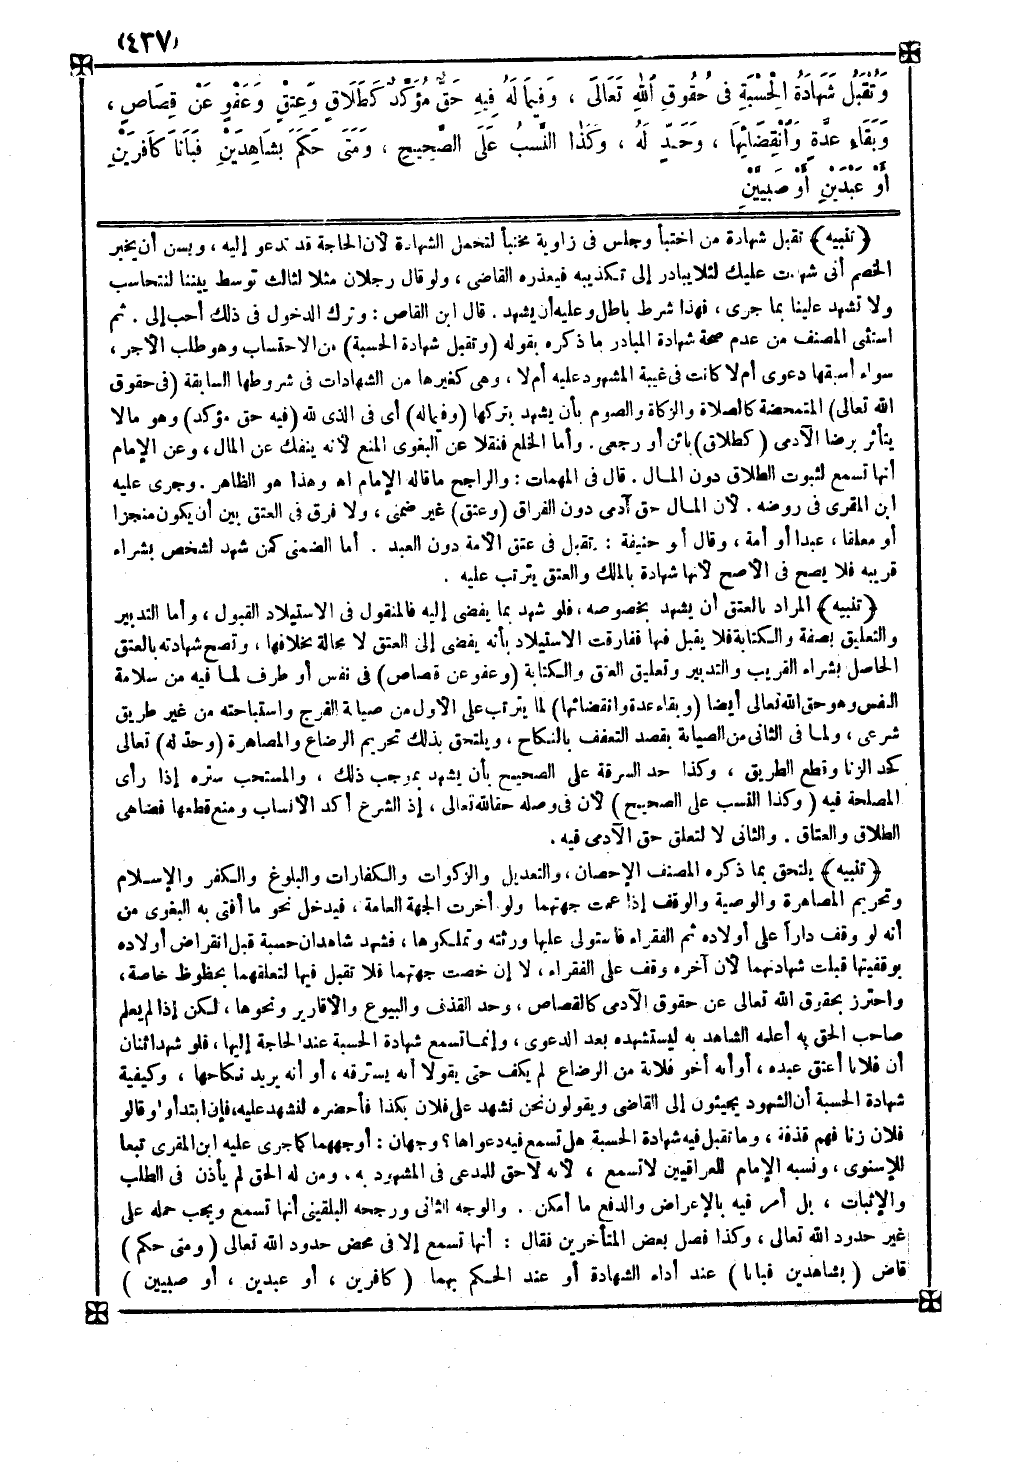 (٤٣٧)
وَتُقْبَلُ شَهَادَةُ الْحِسْبَةِ فِى حُقُوقِ اللهِ تَعَالَى ، وَفِيمَا لَهُ فِيهِ حَقٌّ مُؤَكَّدٌ كَطَلَاقٍ وَعِتْقٍ وَعَفْوٍ عَنْ قِصَاصٍ ،
وَبَقَاءِ عِدَّةٍ وَانْقِضَائِهَا ، وَحَدٍّ لَهُ ، وَكَذَا النَّسَبُ عَلَى الصَّحِيحِ ، وَمَتَى حَكَمَ بِشَاهِدَيْنِ فَبَانَا كَافِرَيْنِ
أَوْ عَبْدَيْنِ أَوْ صَبِيَّيْنِ
﴿ تنبيه ﴾ تقبل شهادة من اختبأ وجلس فى زاوية مختبأ لتحمل الشهادة لأن الحاجة قد تدعو إليه ، ويسن أن يخبر
الخصم أنى شهدت عليك لئلا يبادر إلى تكذيبه فيعذره القاضى ، ولو قال رجلان مثلا لثالث توسط بيننا لنتحاسب
ولا تشهد علينا بما جرى ، فهذا شرط باطل وعليه أن يشهد . قال ابن القاص : وترك الدخول فى ذلك أحب إلى . ثم
استثنى المصنف من عدم صحة شهادة المبادر ما ذكره بقوله (وتقبل شهادة الحسبة) من الاحتساب وهو طلب الأجر ،
سواء أسبقها دعوى أم لا كانت فى غيبة المشهود عليه أم لا ، وهى كغيرها من الشهادات فى شروطها السابقة (فى حقوق
الله تعالى) المتمحضة كالصلاة والزكاة والصوم بأن يشهد بتركها (وفيما له) أى فى الذى لله (فيه حق مؤكد) وهو ما لا
يتأثر برضا الآدمى (كطلاق) بائن أو رجعى . وأما الخلع فنقلا عن البغوى المنع لأنه ينفك عن المال ، وعن الإمام
أنها تسمع لثبوت الطلاق دون المال . قال فى المهمات : والراجح ما قاله الإمام اه وهذا هو الظاهر . وجرى عليه
ابن المقرى فى روضه . لأن المال حق آدمى دون الفراق (وعتق) غير ضمنى ، ولا فرق فى العتق بين أن يكون منجزا
أو معلقا ، عبدا أو أمة ، وقال أبو حنيفة : تقبل فى عتق الأمة دون العبد . أما الضمنى كمن شهد لشخص بشراء
قريبه فلا يصح فى الأصح لأنها شهادة بالملك والعتق يترتب عليه .
﴿ تنبيه ﴾ المراد بالعتق أن يشهد بخصوصه ، فلو شهد بما يفضى إليه فالمنقول فى الاستيلاد القبول ، وأما التدبير
والتعليق بصفة والكتابة فلا يقبل فيها ففارقت الاستيلاد بأنه يفضى إلى العتق لا محالة بخلافها ، وتصح شهادته بالعتق
الحاصل بشراء القريب والتدبير وتعليق العتق والكتابة (وعفو عن قصاص) فى نفس أو طرف لما فيه من سلامة
النفس وهو حق الله تعالى أيضا (وبقاء عدة وانقضائها) لما يترتب على الأول من صيانة الفرج واستباحته من غير طريق
شرعى ، ولما فى الثانى من الصيانة بقصد التعفف بالنكاح ، ويلتحق بذلك تحريم الرضاع والمصاهرة (وحد له) تعالى
كحد الزنا وقطع الطريق ، وكذا حد السرقة على الصحيح بأن يشهد بموجب ذلك ، والمستحب ستره إذا رأى
المصلحة فيه ( وكذا النسب على الصحيح ) لأن فى وصله حقا لله تعالى ، إذ الشرع أكد الأنساب ومنع قطعها فضاهى
الطلاق والعتاق . والثانى لا لتعلق حق الآدمى فيه .
﴿ تنبيه ﴾ يلتحق بما ذكره المصنف الإحصان ، والتعديل والزكوات والكفارات والبلوغ والكفر والإسلام
وتحريم المصاهرة والوصية والوقف إذا عمت جهتهما ولو أخرت الجهة العامة ، فيدخل نحو ما أفتى به البغوى من
أنه لو وقف دارا على أولاده ثم الفقراء فاستولى عليها ورثته وتملكوها ، فشهد شاهدان حسبة قبل انقراض أولاده
بوقفيتها قبلت شهادتهما لأن آخره وقف على الفقراء ، لا إن خصت جهتهما فلا تقبل فيها لتعلقهما بحظوظ خاصة ،
واحترز بحقوق الله تعالى عن حقوق الآدمى كالقصاص ، وحد القذف والبيوع والأقارير ونحوها ، لكن إذا لم يعلم
صاحب الحق به أعلمه الشاهد به ليستشهده بعد الدعوى ، وإنما تسمع شهادة الحسبة عند الحاجة إليها ، فلو شهد اثنان
أن فلانا أعتق عبده ، أو أنه أخو فلانة من الرضاع لم يكف حتى يقولا أنه يسترقه ، أو أنه يريد نكاحها ، وكيفية
شهادة الحسبة أن الشهود يجيئون إلى القاضى ويقولون نحن نشهد على فلان بكذا فأحضره لنشهد عليه ، فإن ابتدأوا وقالوا
فلان زنا فهم قذفة ، وما تقبل فيه شهادة الحسبة هل تسمع فيه دعواها ؟ وجهان : أوجههما كما جرى عليه ابن المقرى تبعا
للإسنوى ، ونسبه الإمام للعراقيين لا تسمع ، لأنه لا حق للمدعى فى المشهود به . ومن له الحق لم يأذن فى الطلب
والإثبات ، بل أمر فيه بالإعراض والدفع ما أمكن . والوجه الثانى ورجحه البلقينى أنها تسمع ويجب حمله على
غير حدود الله تعالى ، وكذا فصل بعض المتأخرين فقال : أنها تسمع إلا فى محض حدود الله تعالى ( ومتى حكم )
قاض ( بشاهدين فبانا ) عند أداء الشهادة أو عند الحكم بهما ( كافرين ، أو عبدين ، أو صبيين )